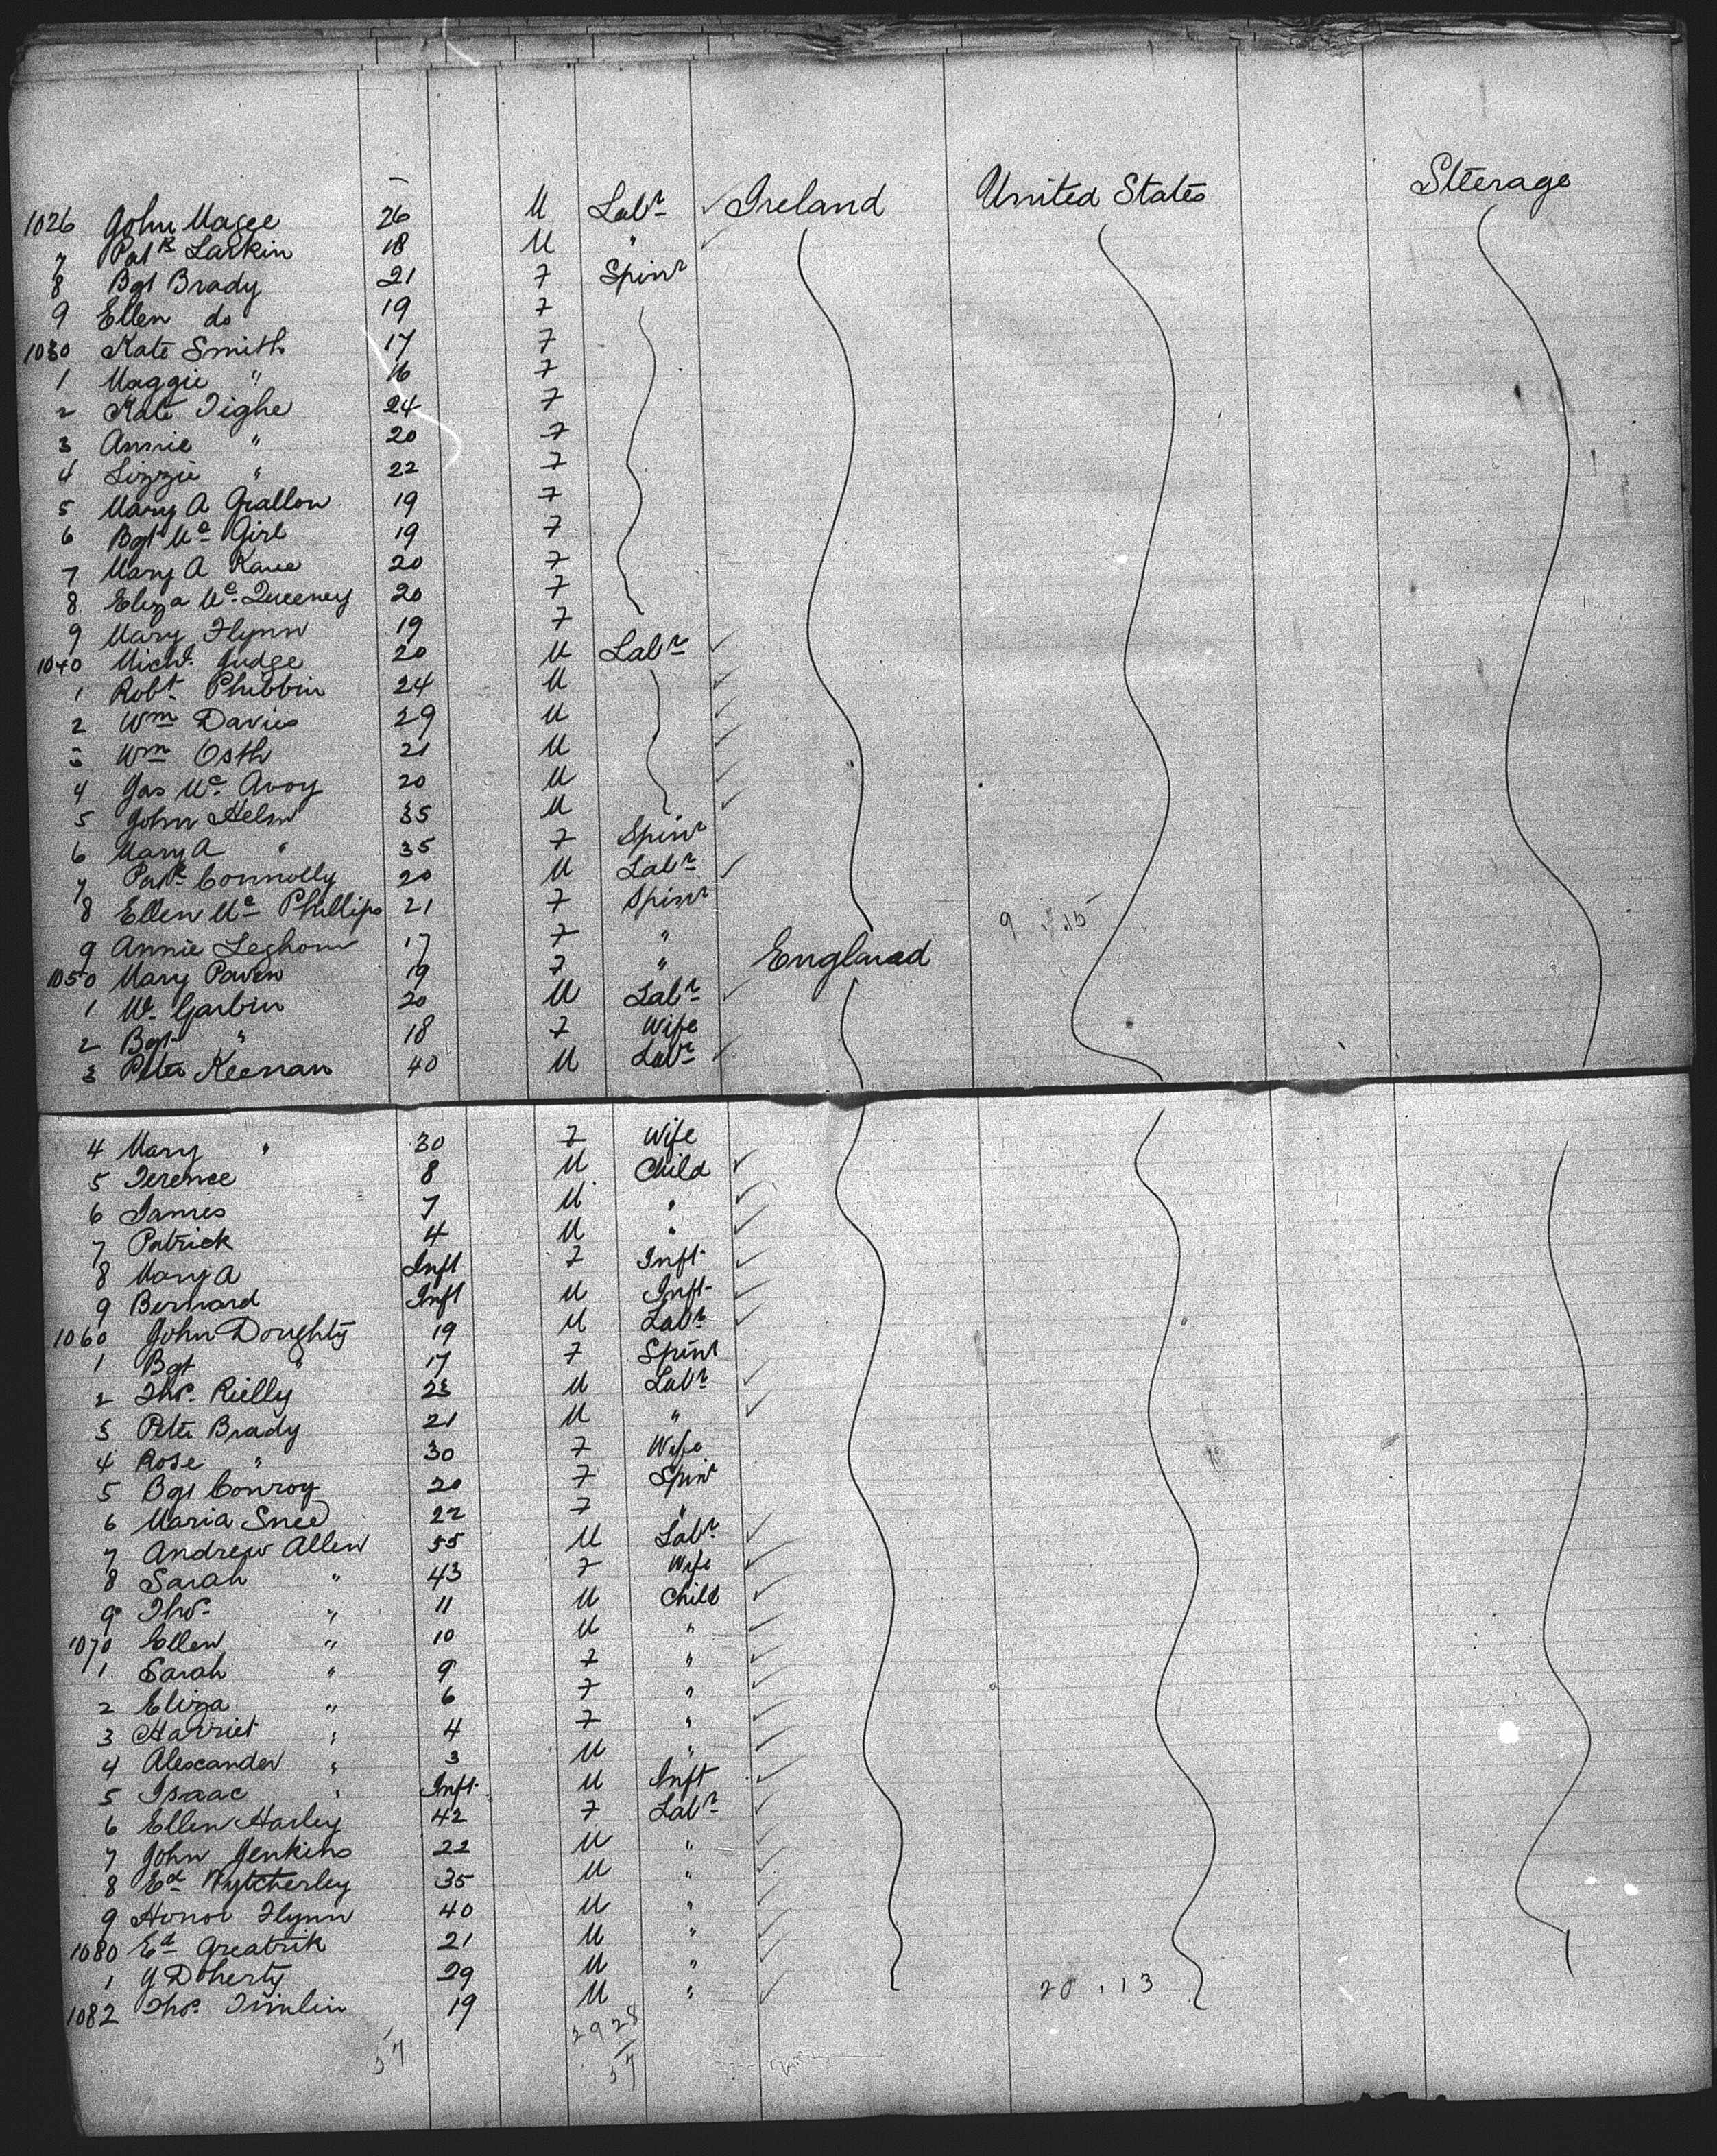 1026 John Magee 26 M Labr ✓ Ireland United States Steerage
7 Patk Larkin 18 M " ✓
8 Bgt Brady 21 F Spinr
9 Ellen do 19 F
1030 Kate Smith 17 F
1 Maggie " 16 F
2 Kate Tighe 24 F
3 Annie " 20 F
4 Lizzie " 22 F
5 Mary A Grallon 19 F
6 Bgt Mc Girl 19 F
7 Mary A Kane 20 F
8 Eliza Mc Queeney 20 F
9 Mary Flynn 19 F
1040 Michl Judge 20 M Labr ✓
1 Robt Phibbin 24 M ✓
2 Wm Davies 29 M ✓
3 Wm Osth 21 M ✓
4 Jas Mc Avoy 20 M ✓
5 John Helm 35 M ✓
6 Mary A " 35 F Spinr
7 Patk Connolly 20 M Labr ✓
8 Ellen Mc Phillips 21 F Spinr
9 Annie Leghorn 17 F "
1050 Mary Paven 19 F " England
1 W. Garbin 20 M Labr ✓
2 Bgt " 18 F Wife
3 Peter Keenan 40 M Labr ✓
4 Mary " 30 F Wife
5 Terence 8 M Child ✓
6 James 7 M " ✓
7 Patrick 4 M " ✓
8 Mary A Inft F Inft ✓
9 Bernard Inft M Inft ✓
1060 John Doughty 19 M Labr ✓
1 Bgt " 17 F Spinr
2 Thos. Rielly 23 M Labr ✓
3 Peter Brady 21 M " ✓
4 Rose " 30 F Wife
5 Bgt Conroy 20 F Spinr
6 Maria Snee 22 F "
7 Andrew Allen 55 M Labr ✓
8 Sarah " 43 F Wife ✓
9 Thos. " 11 M Child ✓
1070 Ellen " 10 M " ✓
1 Sarah " 9 F " ✓
2 Eliza " 6 F " ✓
3 Harriet " 4 F " ✓
4 Alexander " 3 M " ✓
5 Isaac " Inft M Inft ✓
6 Ellen Harley 42 F Labr ✓
7 John Jenkins 22 M " ✓
8 Ed Wytcherley 35 M " ✓
9 Honor Flynn 40 M " ✓
1080 Ed Greatrik 21 M " ✓
1 J Doherty 29 M " ✓
1082 Thos. Timlin 19 M " ✓
29 28
57 57